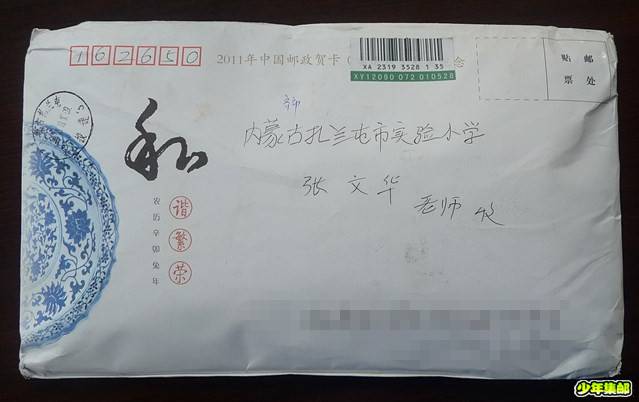 162650
2011年中国邮政贺卡(
念
XA 2319 3528 1 35
XY12090 072 010528
贴 邮
票 处
内蒙古扎兰屯市实验小学
张文华 老师 收
和
谐
繁
荣
农历辛卯兔年
少年集邮